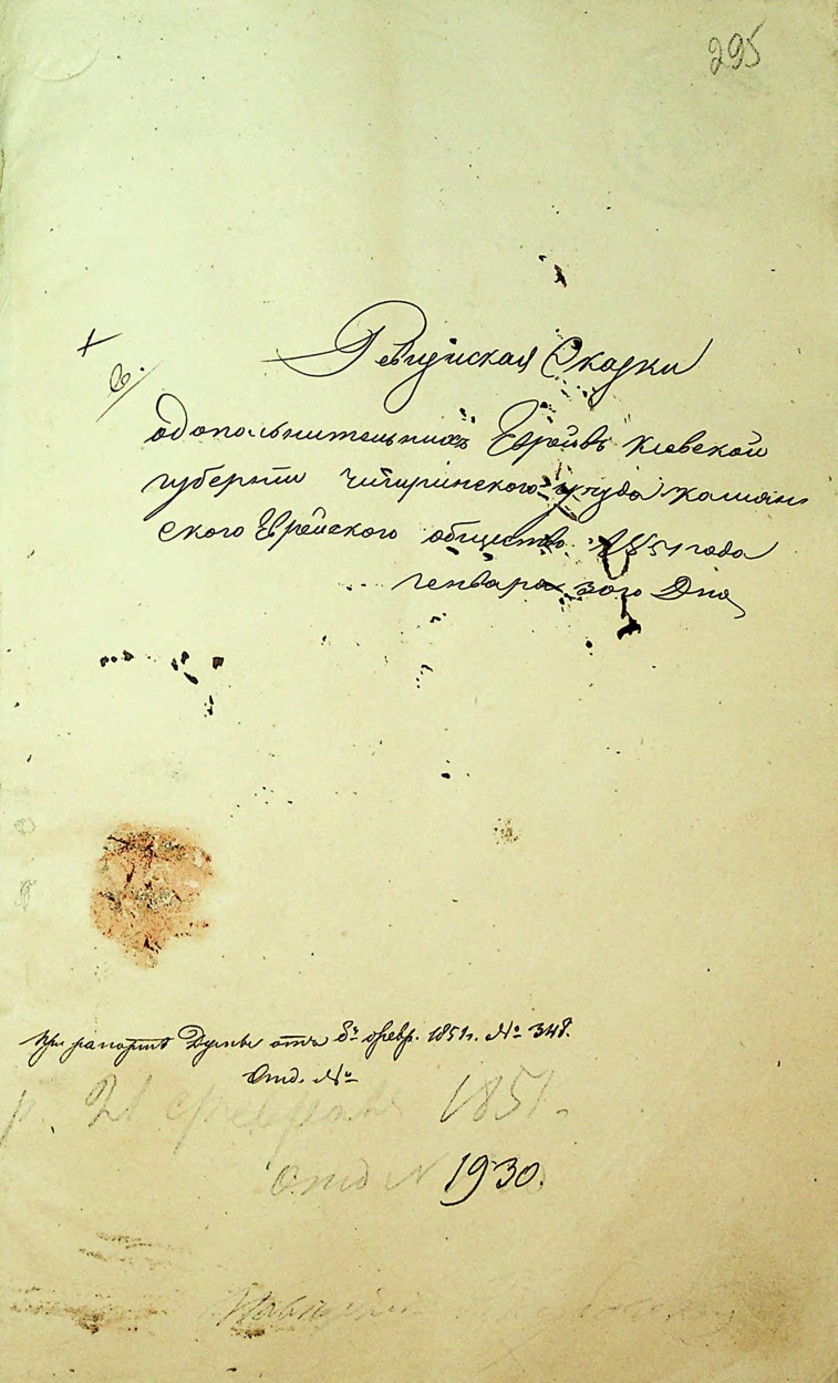 295
Ревизиская Сказки
одопольнительных Еврейвъ Киевской
губернии Чигиринского уезда Камян
ского Еврейского общество 1851 года
генваря 30го Дня
При рапорте Думы отъ 6го февр. 1851г. № 348.
Отд. №
р. 21 февраля 1851.
Отд N 1930.